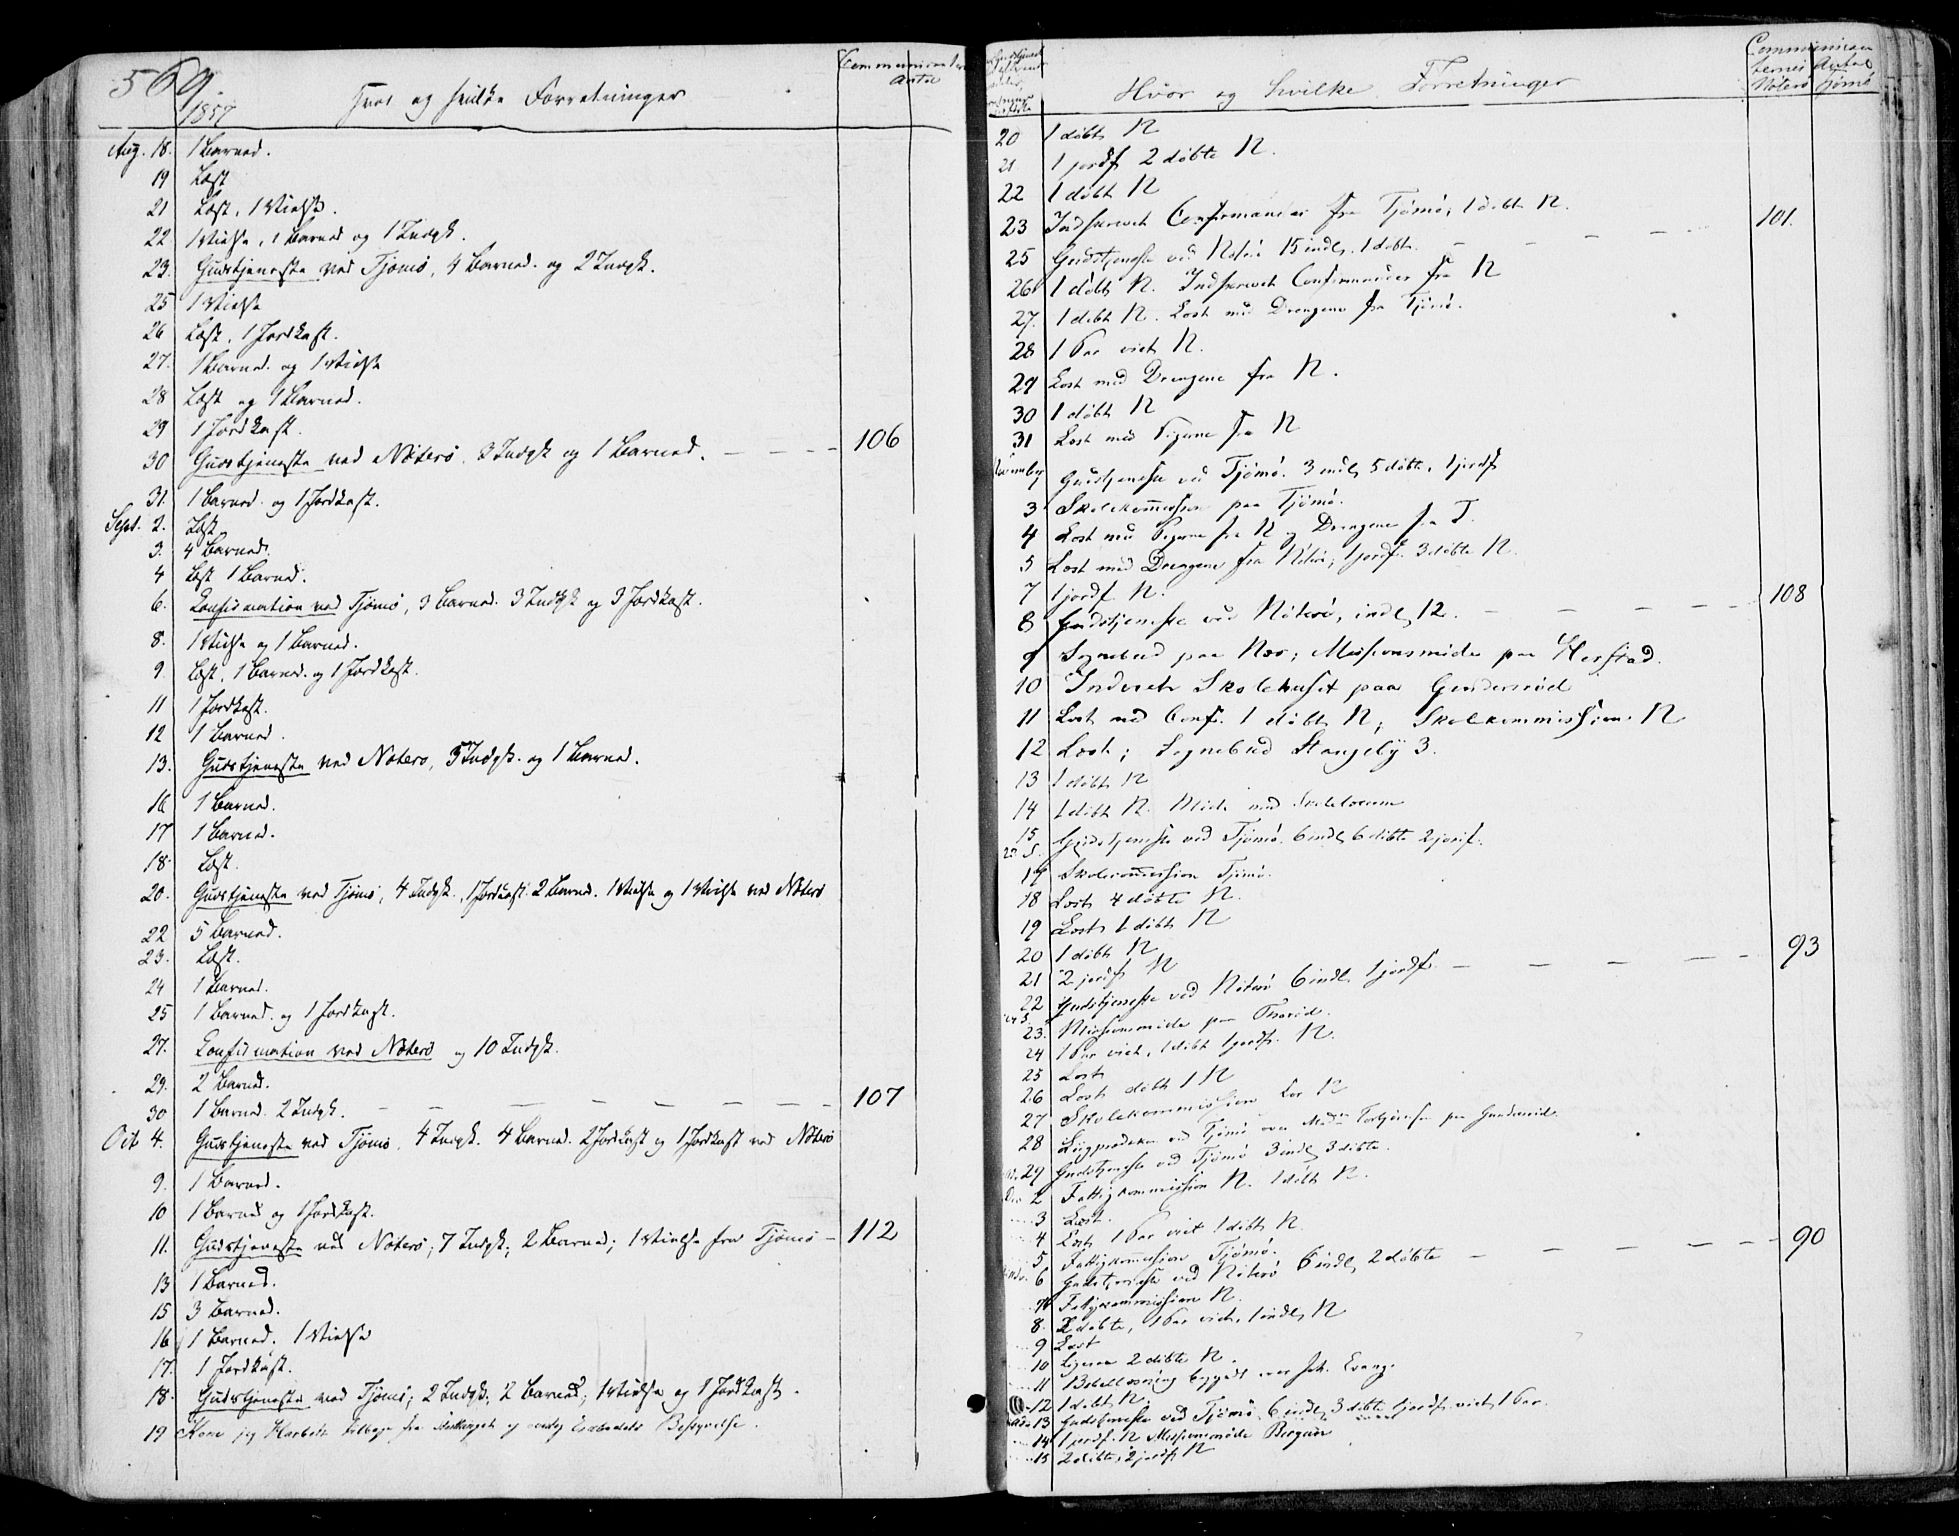 569.
1857
Hvor og hvilke Forretninger
Communicanter
Antal
Aug. 18. 1 Barned.
19 Læst
21 Læst, 1 Vielse.
22 1 Vielse, 1 Barned og 1 Indgk.
23. Gudstjeneste ved Tjømø, 4 Barned. og 2 Indgk.
25 1 Vielse
26 Læst, 1 Jordkast.
27. 1 Barned. og 1 Vielse
28 Læst og 1 Barned.
29 1 Jordkast.
30 Gudstjeneste ved Nøterø. 3 Indgk og 1 Barned. — — — 106
31. 1 Barned. og 1 Jordkast.
Sept. 2. Læst
3. 4 Barned.
4 Læst 1 Barned.
6. Confirmation ved Tjømø, 3 Barned. 3 Indgk og 3 Jordkast.
8. 1 Vielse og 1 Barned.
9. Læst, 1 Barned. og 1 Jordkast.
11 1 Jordkast.
12 1 Barned.
13. Gudstjeneste ved Nøterø, 5 Indgk. og 1 Barned.
16 1 Barned.
17 1 Barned.
18. Læst.
20. Gudstjeneste ved Tjømø, 4 Indgk. 1 Jordkast. 2 Barned. 1 Vielse og 1 Vielse ved Nøterø
22 5 Barned.
23. Læst.
24 1 Barned.
25 1 Barned. og 1 Jordkast.
27. Confirmation ved Nøterø og 10 Indgk.
29. 2 Barned.
30 1 Barned. 2 Indgk. — — — — — — — 107
Oct 4. Gudstjeneste ved Tjømø. 4 Indgk. 4 Barned. 2 Jordkast og 1 Jordkast ved Nøterø
9. 1 Barned.
10 1 Barned og 1 Jordkast.
11. Gudstjeneste ved Nøterø; 7 Indgk; 2 Barned; 1 Vielse fra Tjømø — 112
13 1 Barned.
15 3 Barned.
16 1 Barned. 1 Vielse
17. 1 Jordkast.
18. Gudstjeneste ved Tjømø; 2 Indgk. 2 Barned; 1 Vielse og 1 Jordkast.
19 Kom jeg tilbage fra og Embedets Bestyrelse.
Hvor og hvilke Forretninger
Communican
ternes Antal
Nøterø Tjømø
20 1 døbt N
21 1 jordf 2 døbte N.
22 1 døbt N
23 Indskrevet Confirmander fra Tjømø, 1 døbt N.
25 Gudstjeneste ved Nøterø 15 indl, 1 døbt. — — — — 101.
26 1 døbt N. Indskrevet Confirmander fra N
27. 1 døbt N. Læst med Drengene fra Tjømø.
28 1 Par viet N.
29 Læst med Drengene fra N.
30 1 døbt N
31 Læst med Pigerne fra N
November Gudstjeneste ved Tjømø. 3 indl, 5 døbte, 1 jordf
3 Skolekommission paa Tjømø.
4 Læst med Pigerne fra N og Drengene fra T.
5 Læst med Drengene fra Nøterø, 1 jordf. 3 døbte N.
7 1 jordf N.
8 Gudstjeneste ved Nøterø, indl, 12. — — — — 108
9 Sognebud paa Næs; Missionsmøde paa Herstad.
10 Indviet Skolehuset paa Gundersrød
11 Læst med Conf. 1 døbt N; Skolekommission N
12 Læst; Sognebud Stangeby 3.
13 1 døbt N
14 1 døbt N. Møde med Skolelærerne
15 Gudstjeneste ved Tjømø. 6 indl, 6 døbte 2 jordf.
17 Skolecommission Tjømø.
18 Læst 4 døbte N.
19 Læst 1 døbt N
20 1 døbt N
21 2 jordf N
22 Gudstjeneste ved Nøterø 6 indl, 1 jordf — — — — 93
23. Missionsmøde paa
24 1 Par viet, 1 døbt 1 jordf. N.
25 Læst
26 Læst døbt 1 N
27 Skolekommission for N
28 Liigprædiken ved Tjømø over paa Gundersrød.
29 Gudstjeneste ved Tjømø 3 indl, 3 døbte.
Dec 2 Fattigkommission N. 1 døbt N.
3 Læst.
4 Læst, 1 Par viet 1 døbt N.
5 Fattigkommission Tjømø.
6 Gudstjeneste ved Nøterø 6 indl, 2 døbte — — — — 90
7 Fattigkommission N.
8. 2 døbte, 1 Par viet, 1 indl, N
9 Læst
10 Ligesaa 2 døbte N.
11 Bibellæsning begyndt over Joh. Evang.
12 1 døbt N.
13 Gudstjeneste ved Tjømø. 6 indl, 3 døbte 1 jordf. viet 1 Par.
14 1 jordf. N. Missionsmøde Bergan
15 2 døbte, 2 jordf N